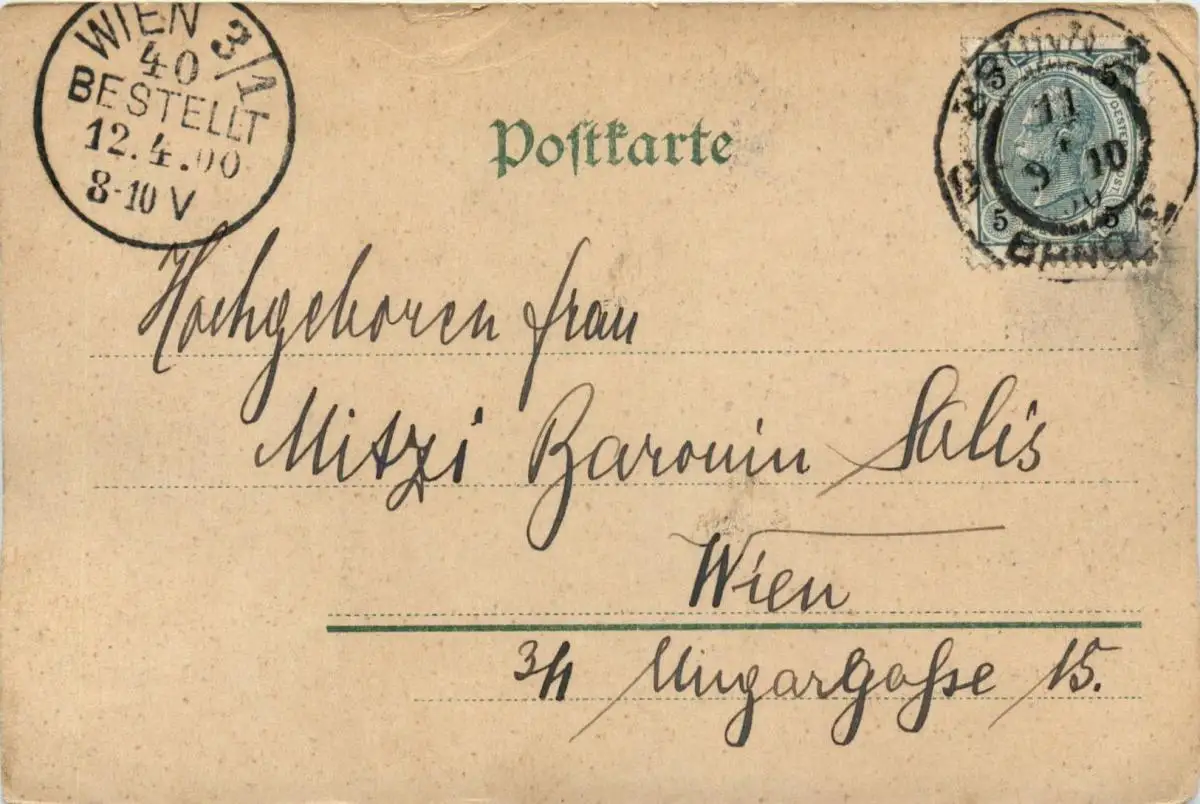 WIEN 3/1
40
BESTELLT
12.4.00
8-10 V
Poſtkarte
5 5
11
9 10
5 5
BRNO
Hochgeboren Frau
Mitzi Baronin Salis
Wien
3/1 Ungargasse 15.